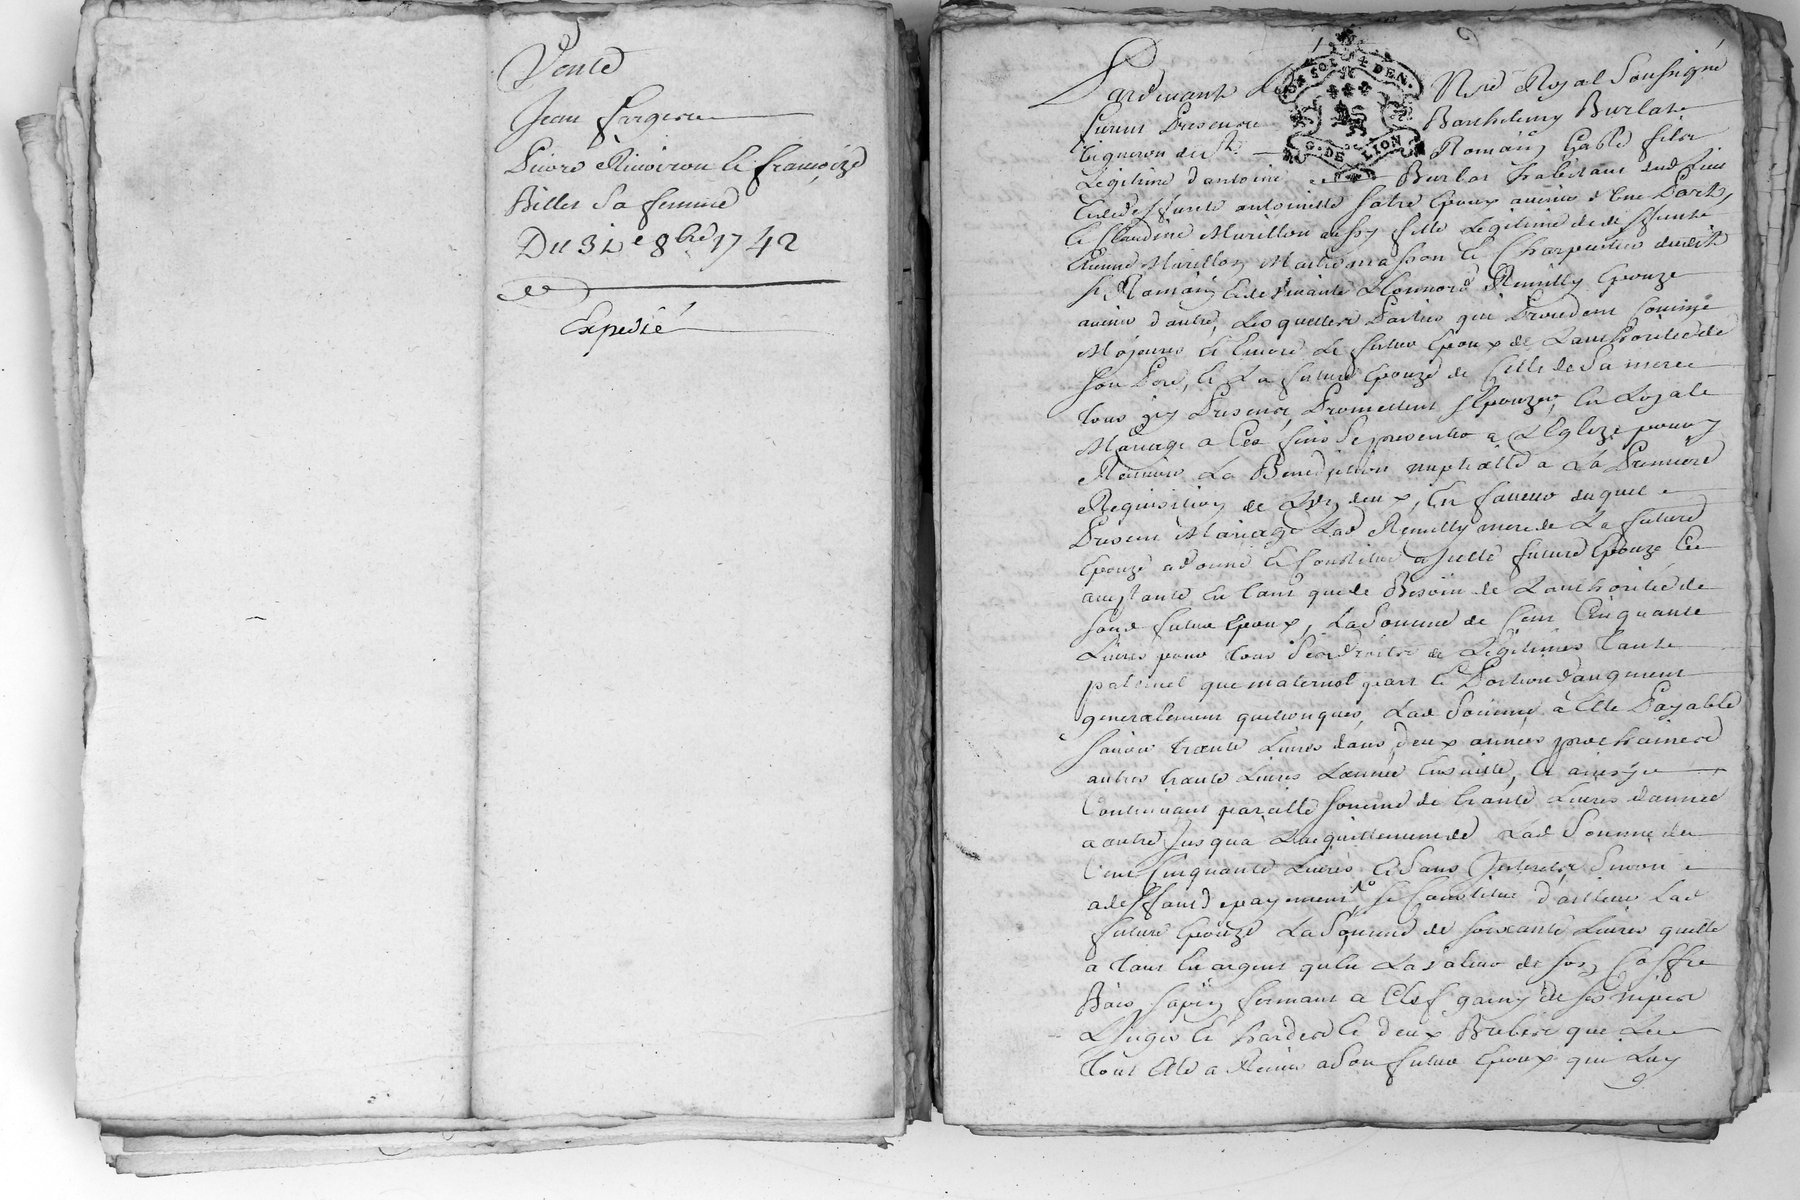 Vente
Jean fargere
Pierre Rivoiron & françoize
Billet Sa femme
Du 31e 8bre 1742
Expedié
Pardevant Le Nre Royal Soussigné
furent Presents Barthelemy Burlat
Vigneron de St Romain
Legitime d'antoine Burlat habitant dud lieu
& de deffunte antoinette fatre Epoux avenir d'Une Part,
& Claudine Murillon aussy fille Legitime de deffunt
Etienne Murillon Maitre masson & Charpentier dudit
St Romain & de vivante Remilly Epouze
avenir d'autre, Lesquelles Parties qui Procedent Comme
Majeures & Encore Le futur Epoux de L'authorité de
son Pere, & La future Epouze de Celle de Sa mere
tous icy Presents, Promettent s'Epouzer, en Loyale
Mariage a Ces fins Se presenter a L'Eglize pour y
Recevoir La Benediction nuptialle a La Premiere
Requisition de L'un deux, En faveur duquel
Present Mariage Lad Remilly mere de La future
Epouze a donné & Constitué a Jcelle future Epouze Ce
acceptante En tant que de Besoin de L'authorité de
soud futur Epoux, La Somme de Cent Cinquante
Livres pour tous Ses droits de Legitimes tante
paternel que maternel part & Portion d'augment
generalement quelconques, Lad Somme à Elle Payable
sçavoir trante Livres dans deux années prochaines
autres trante Livres L'année Ensuitte, & ainsy
Continuant pareille somme de trante Livres d'année
a autre Jusqua L'acquittement de Lad Somme de
Cent Cinquante Livres & Sans Jnterets Sinon
a deffaut de payement, Se Constitue d'ailleurs Lad
future Epouze La Somme de soixante Livres quelle
a tant En argent qu'En La valeur de son Coffre
Bois sapin fermant a Clef garny de ses nipes
Linges & hardes & deux Brebis que Le
tout Elle a Remis a Son futur Epoux qui Luy